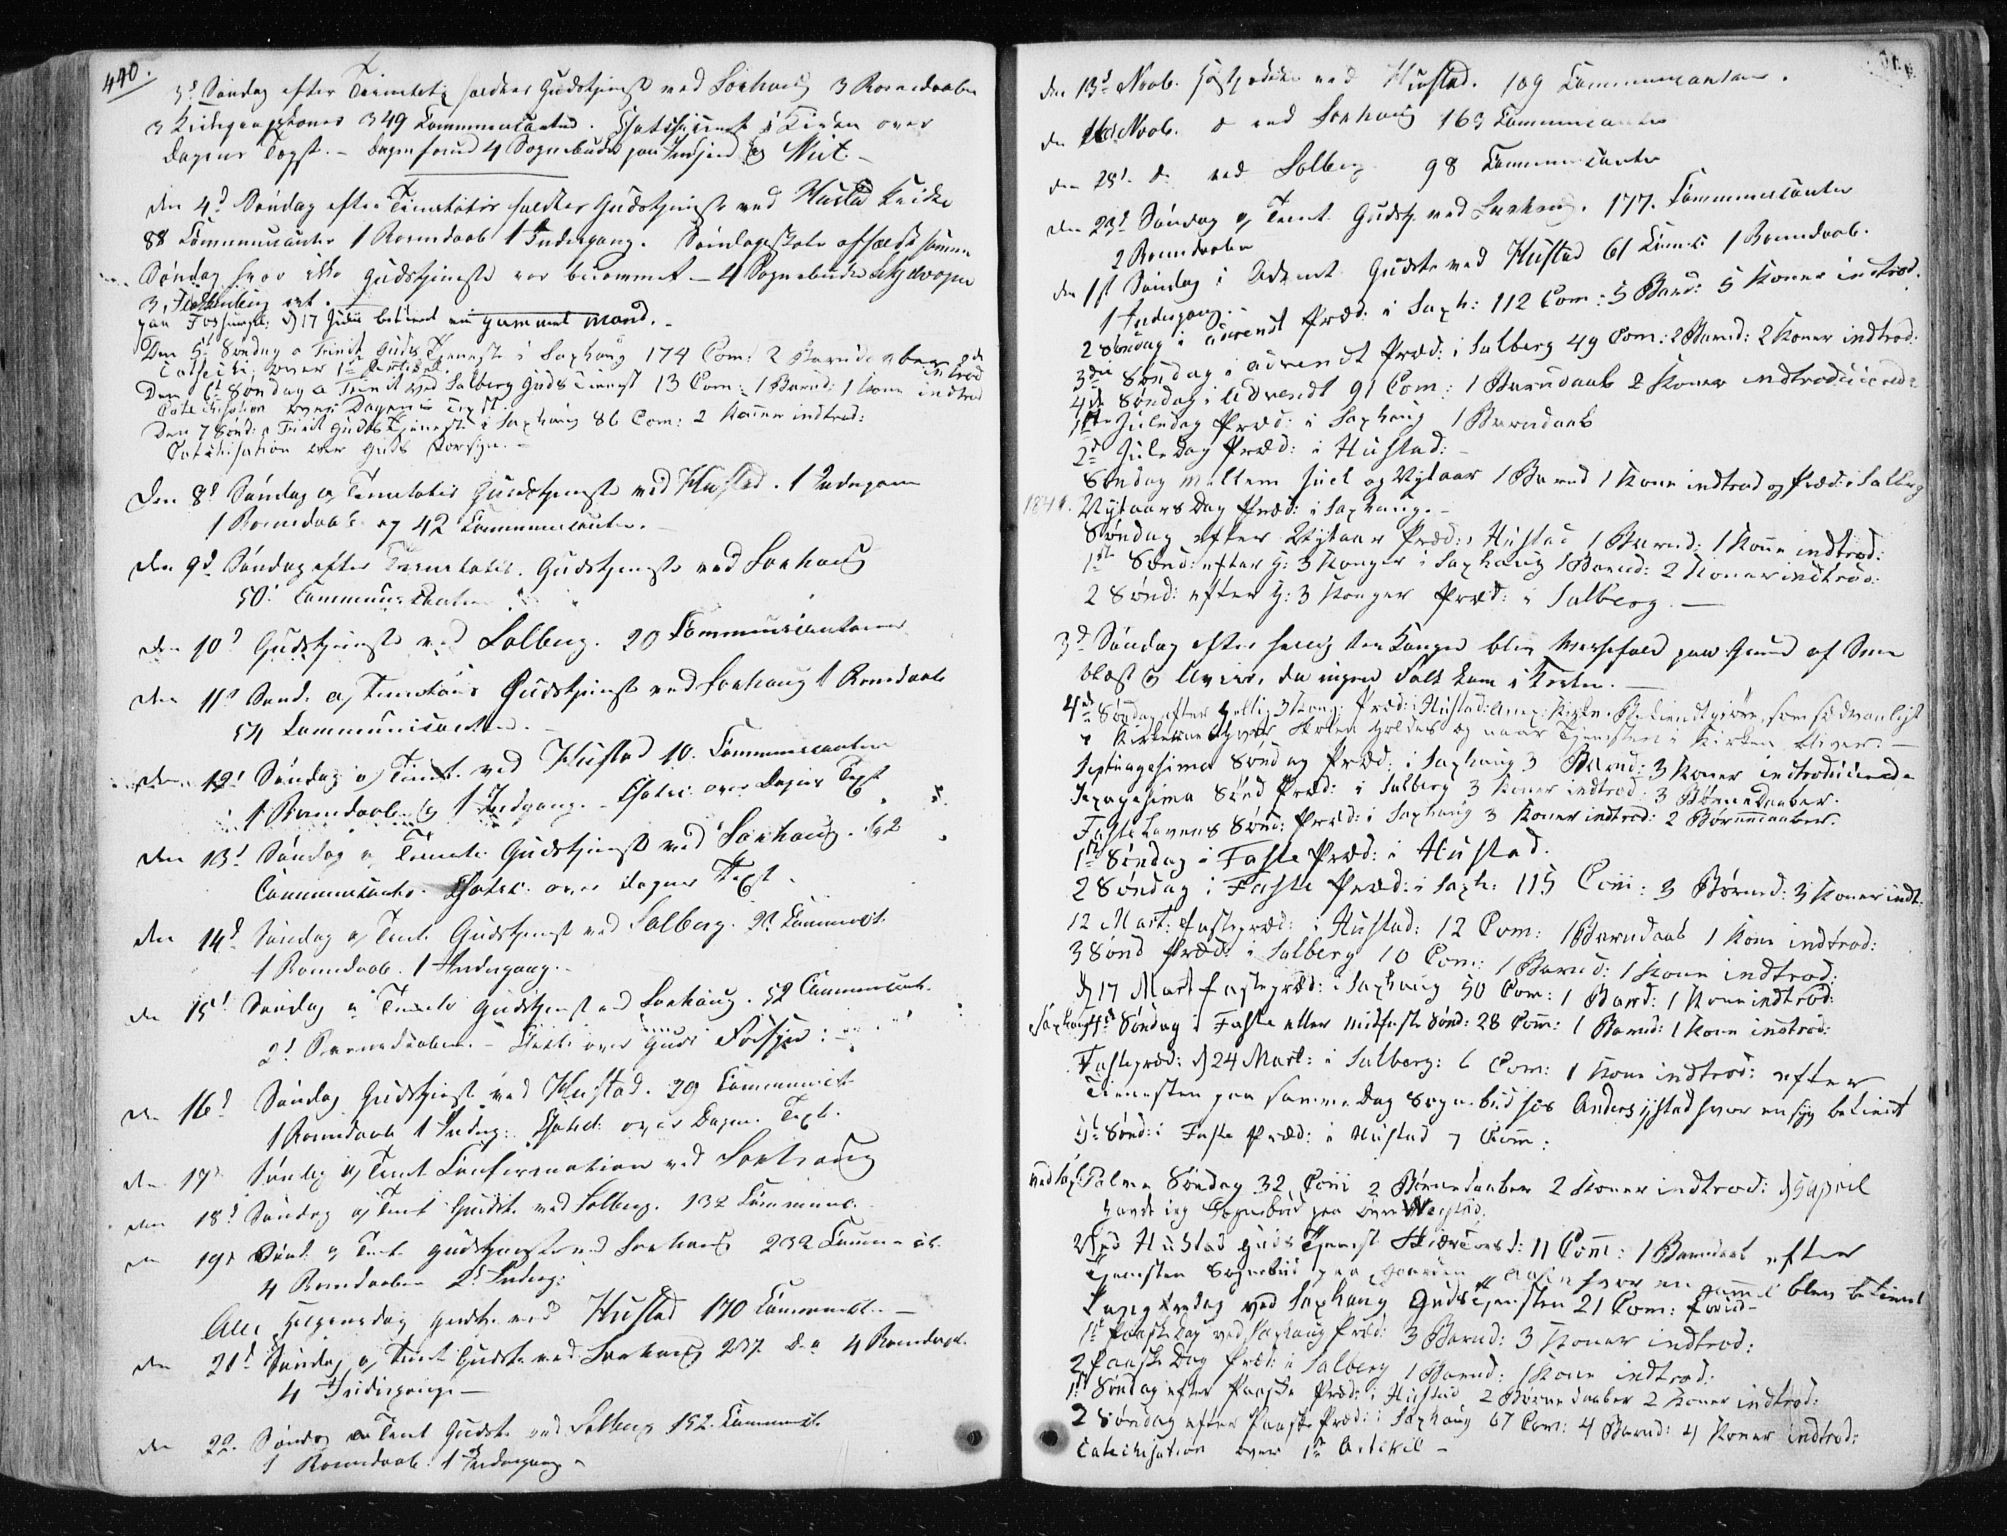 440.
3d Søndag efter Trinitatis holdtes Gudstjeneste ved Saxhaug 3 Barnedaabe
3 349 Communicanter. Chatechiseret i Kirken over
Dagens Text. – 4 Sognebude paa
den 4d Søndag efter Trinitatis holdtes Gudstjeneste ved Hustad Kirke
88 Communicanter 1 Barnedaab 1 Indegang. Søndagsskole
Søndag hvor ikke Gudstjeneste var – 4 Sognebude
3,
paa d 17 Julii betient en gammel Mand. –
Den 5t Søndag a Trinit Guds Tieneste i Saxhaug 174 Com: 2 Barnd:
Catechi: over 1st Artikel.
Den 6t Søndag a Trinit ved Salberg Guds Tienest 13 Com: 1 Barnd: 1 Kone indtrod
Catechisation over Dagens Text.
Den 7 Sønd: a Trinit Guds Tieneste i Saxhaug 86 Com: 2 Koner indtrod:
Catechisation over Guds Forsyn. –
Den 8d Søndag a Trinitatis Gudstjeneste ved Hustad. 1 Indegang
1 Barnedaab og 42 Communicanter. –
den 9d Søndag efter Trinitatis. Gudstjeneste ved Saxhaug
50 Communicanter
den 10d Gudstjeneste ved Salberg. 20 Communicanter
den 11d Sønd: a Trinitatis Gudstjeneste ved Saxhaug 1 Barnedaab
54 Communicanter. –
den 12d Søndag a Trinit. ved Hustad 10. Communicanter
1 Barnedaab og 1 Indgang. – Chatec: over Dagens Text
den 13d Søndag a Trinit: Gudstjeneste ved Saxhaug. 62
Communicanter. Chatec: over Dagens Text.
den 14d Søndag a Trinit. Gudstjeneste ved Salberg. Communict.
1 Barnedaab. 1 Indegang. –
den 15d Søndag a Trinit. Gudstjenest ved Saxhaug. 52 Communicant.
2d Barnedaaben. – Chate: over Guds Forsyn: –
den 16d Søndag Gudstjenest ved Hustad. 29 Communict
1 Barnedaab 1 Indeg: Chatec: over Dagens Text.
den 17d Søndag a Trinit Confirmation ved Saxhaug
den 18d Søndag a Trinit Gudst. ved Salberg. 132 Communic.
den 19d Sønd. a Trinit. Gudstjeneste ved Saxhaug 232 Communict.
4 Barnedaaben 2d Indeg:
Alle Helgensdag Gudst. ved Hustad 170 Communict. –
den 21d Søndag a Trinit Gudst. ved Saxhaug 237. 4 Barnedaab.
4 Indegange –
den 22. Søndag a Trinit Gudst. ved Salberg 152. Communict
1 Barnedaab. 1 Indegang –
den 13d Novb. Høstprediken ved Hustad. 109 Communicanter.
den 16d Novb. do ved Saxhaug 163 Communicanter
den do ved Salberg 98 Communicanter
den 23d Søndag a Trinit. Gudstj. ved Saxhaug. 177. Communicanter
2 Barnedaabe
den 1st Søndag i Advent Gudst. ved Hustad 61 Comc: 1 Barnedaab.
1 Indegang. –
2 Søndag i Advendt Præd: i Saxh: 112 Com: 5 Barnd: 5 Koner indtrod.
3die Søndag i Advendt Præd: i Salberg 49 Com: 2 Barnd: 2 Koner indtrod:
4de Søndag i Advendt 91 Com: 1 Barndaab 2 Koner indtroducered:
1ste Juledag Præd: i Saxhaug 1 Barndaab
2d Jule Dag Præd: i Hustad: –
Søndag mellem Juel og Nytaar 1 Barnd 1 Kone indtrod og Præd: i Salberg
1841. Nytaars Dag Præd: i Saxhaug. –
Søndag efter Nytaar Præd: i Hustad 1 Barnd: 1 Kone indtrod:
1ste Sønd: efter H: 3 Konger i Saxhaug 1 Barnd: 2 Koner indtrod:
2 Sønd: efter H: 3 Konger Præd: i Salberg. –
3d Søndag efter hellig tre Konger blev Messefald paa Grund af Snee
blæst og Uveir, da ingen Folk kom i Kirken. –
4de Søndag efter hellig 3 Kong: Præd: i Hustad: Kirke. Bekiendtgiøres som sædvanligt
i Kirkerne hvor Skolen holdes og naar Tjenesten i Kirken bliver. –
Septuagesima Søndag Præd: i Saxhaug 3 Barnd: 3 Koner introducered
Sexagesima Sønd Præd: i Salberg 3 Koner indtrod: 3 Børnedaaber.
Faste Lavens Sønd: Præd: i Saxhaug 3 Koner indtrod: 2 Børnedaaber.
1ste Søndag i Faste Præd: i Hustad.
2 Søndag i Faste Præd: i Saxh: 115 Com: 3 Børned: 3 Koner indt.
12 Mart: Fastepræd: i Hustad: 12 Com: 1 Barndaab 1 Kone indtrod:
3 Sønd Præd: i Salberg 10 Com: 1 Barnd: 1 Kone indtrod:
d 17 Mart Fastepræd: i Saxhaug 50 Com: 1 Barnd: 1 Kone indtrod:
Saxhaug Søndag i Faste eller Midfaste Sønd: 28 Com: 1 Barnd: 1 Kone indtrod:
Fastepræd: d 24 Mart: i Salberg: 6 Com: 1 Kone indtrod: efter
Tienesten paa samme Dag Sognebud hos Anders ystad hvor en syg betient
5t Sønd: i Faste Præd: i Hustad 7 Com:
ved Sax: Palme Søndag 32 Com 2 Børnedaaber 2 Koner indtrod: d 5 April
havde jeg Sognebud paa øvre
Ved Hustad Guds Tjenest Skiærtorsd: 11 Com: 1 Barndaab efter
Tjenesten Sognebud paa Gaarden hvor en gamel blev betient
Langfredag ved Saxhaug Gudstjenesten 21 Com:
1ste Paaske Dag ved Saxhaug Præd: 3 Barnd: 3 Koner indtrod:
2 Paaske Dag Præd: i Salberg 1 Barnd: 1 Kone indtrod:
1st Søndag efter Paaske Præd: i Hustad 2 Børnedaaber 2 Koner indtrod:
2 Søndag efter Paaske Præd: i Saxhaug 67 Com: 4 Barnd: 4 Koner indtrod:
Catechisation over 1ste Artikel –